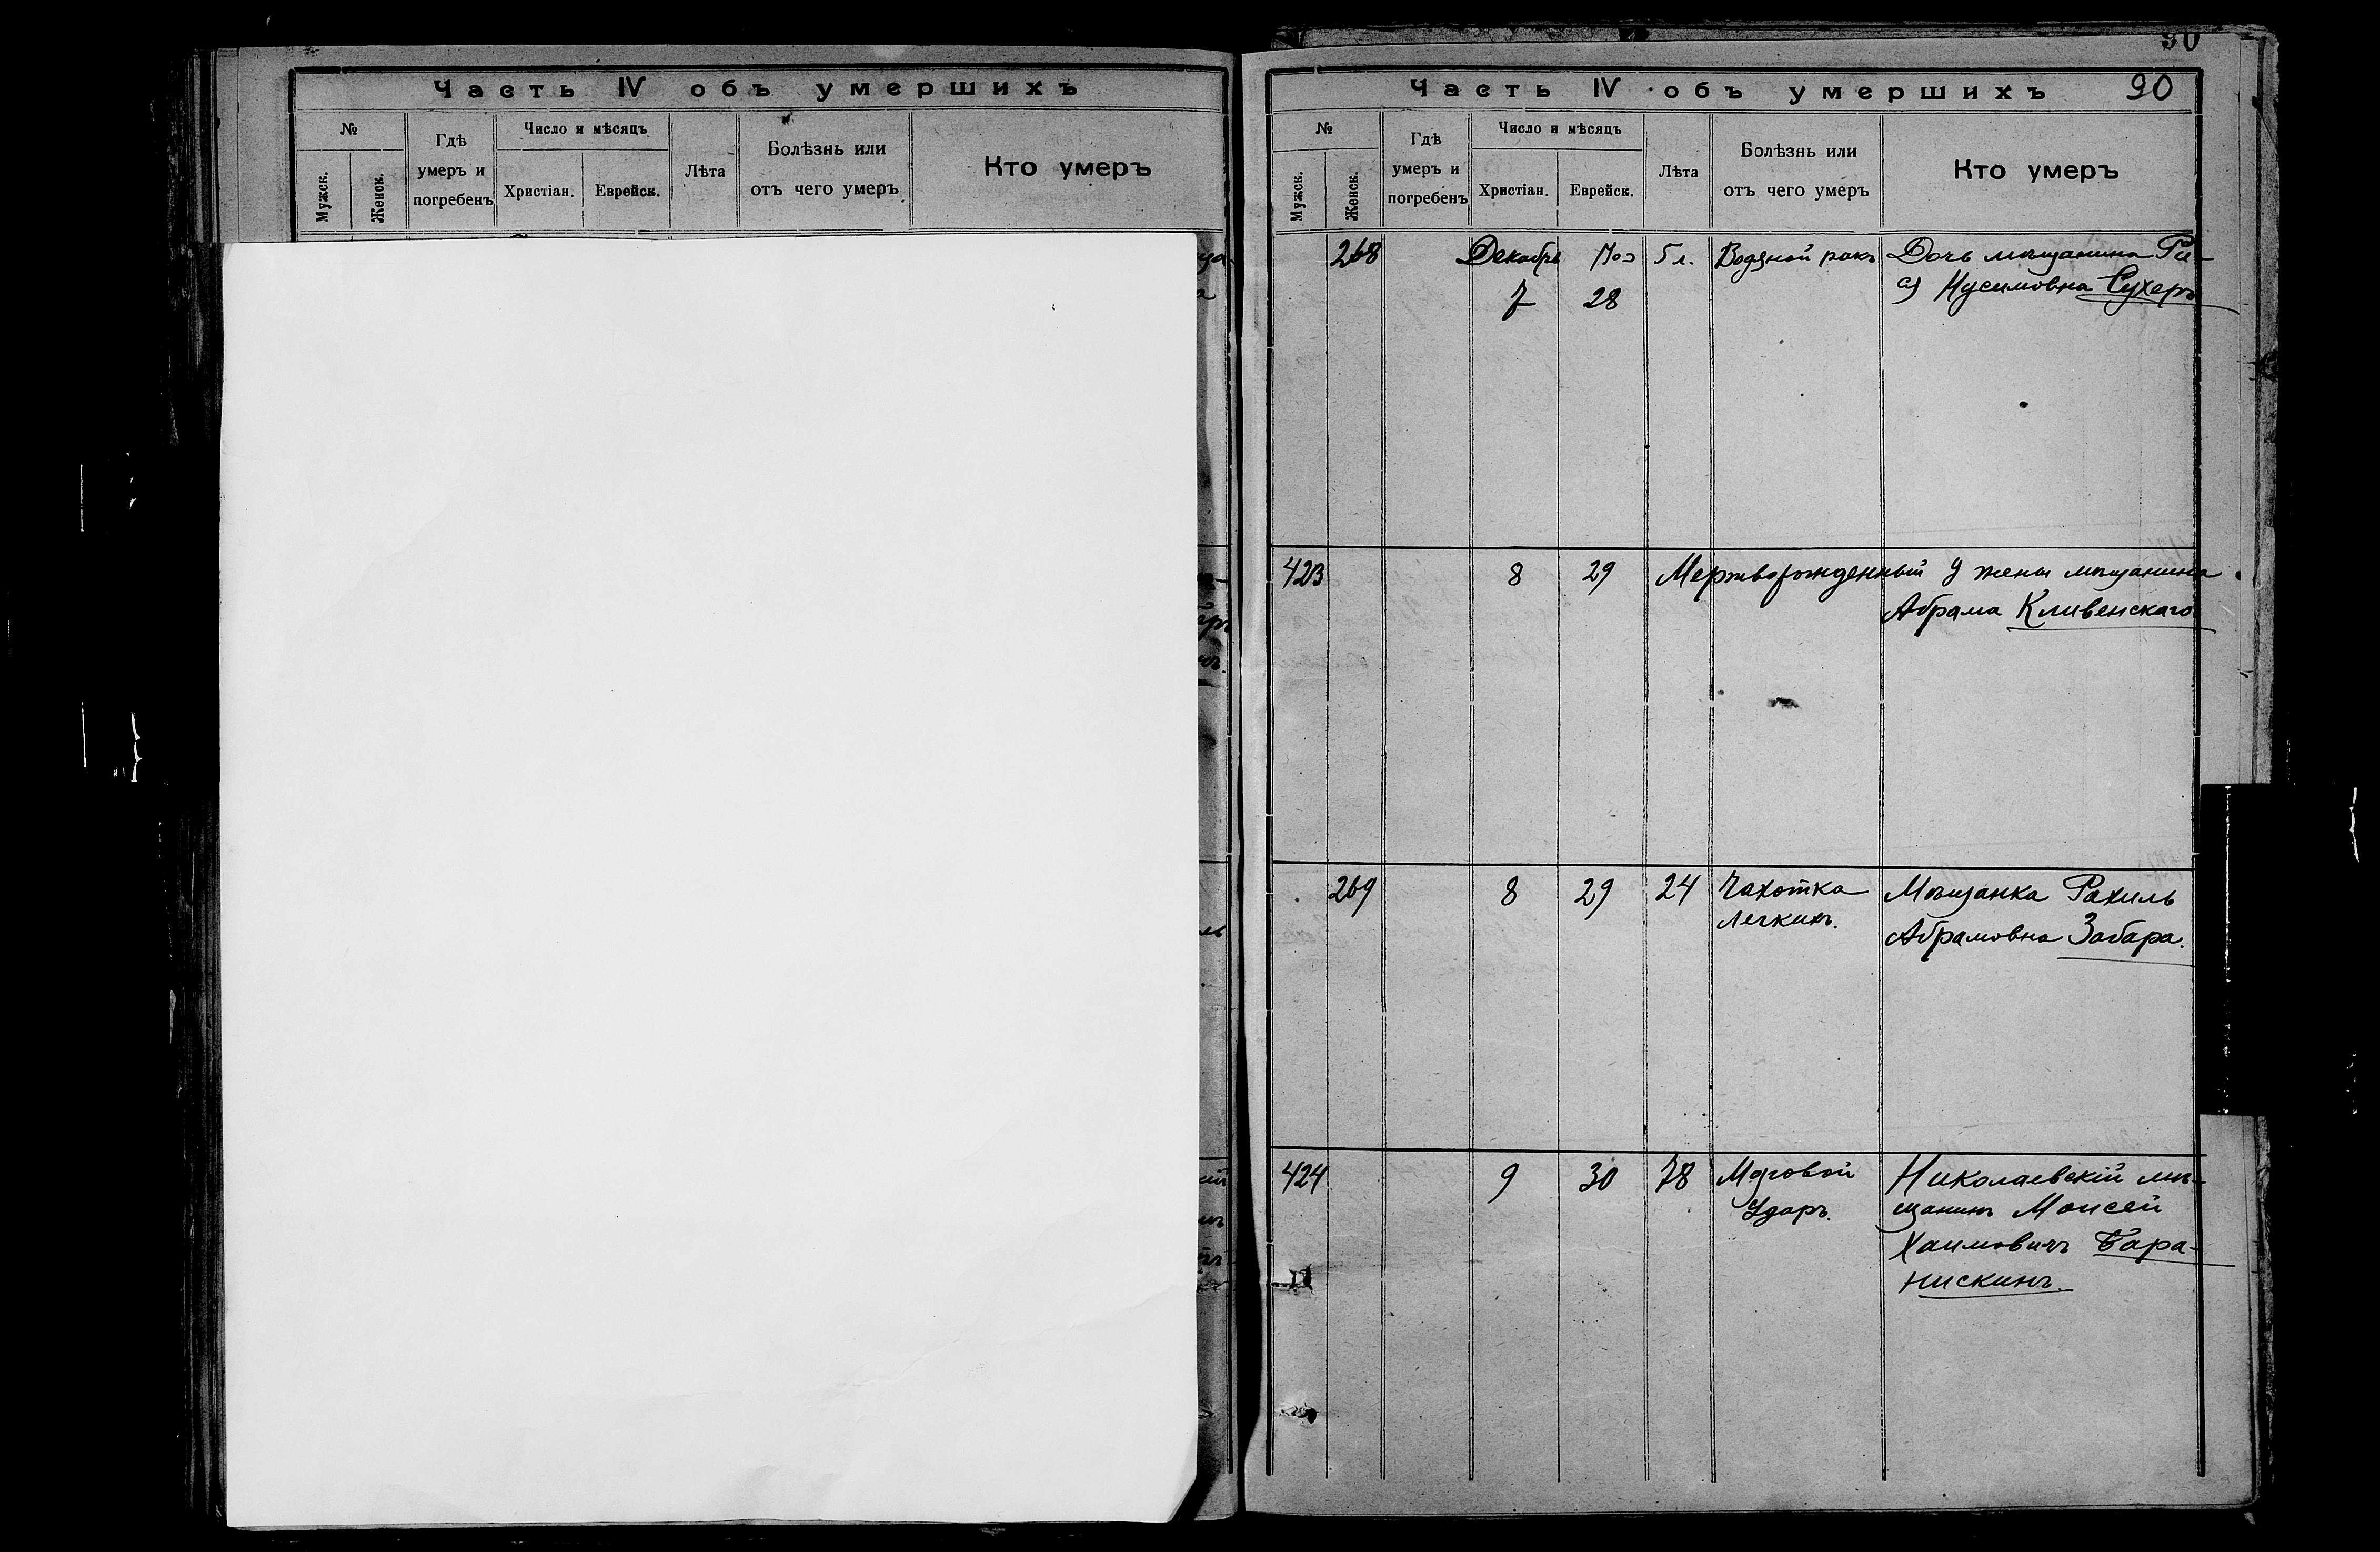 Часть IV объ умершихъ
№
Мужск.
Женск.
Гдѣ
умеръ и
погребенъ
Число и мѣсяцъ
Христіан.
Еврейск.
Лѣта
Болѣзнь или
отъ чего умеръ
Кто умеръ
90
Часть IV объ умершихъ 90
№
Мужск.
Женск.
Гдѣ
умеръ и
погребенъ
Число и мѣсяцъ
Христіан.
Еврейск.
Лѣта
Болѣзнь или
отъ чего умеръ
Кто умеръ
268 Декабрь 5 л. Водяной ракъ Дочь мѣщанина
7 28 Нусимовна Сухеръ
423 8 29 Мертворожденный у жены мѣщанина
Абрама Кливенскаго
269 8 29 24 Чахотка Мѣщанка Рахиль
легкихъ. Абрамовна Забара.
424 9 30 78 Мозговой Николаевскій мѣ-
ударъ. щанинъ Моисей
Хаимовичъ Бара-
нискинъ.